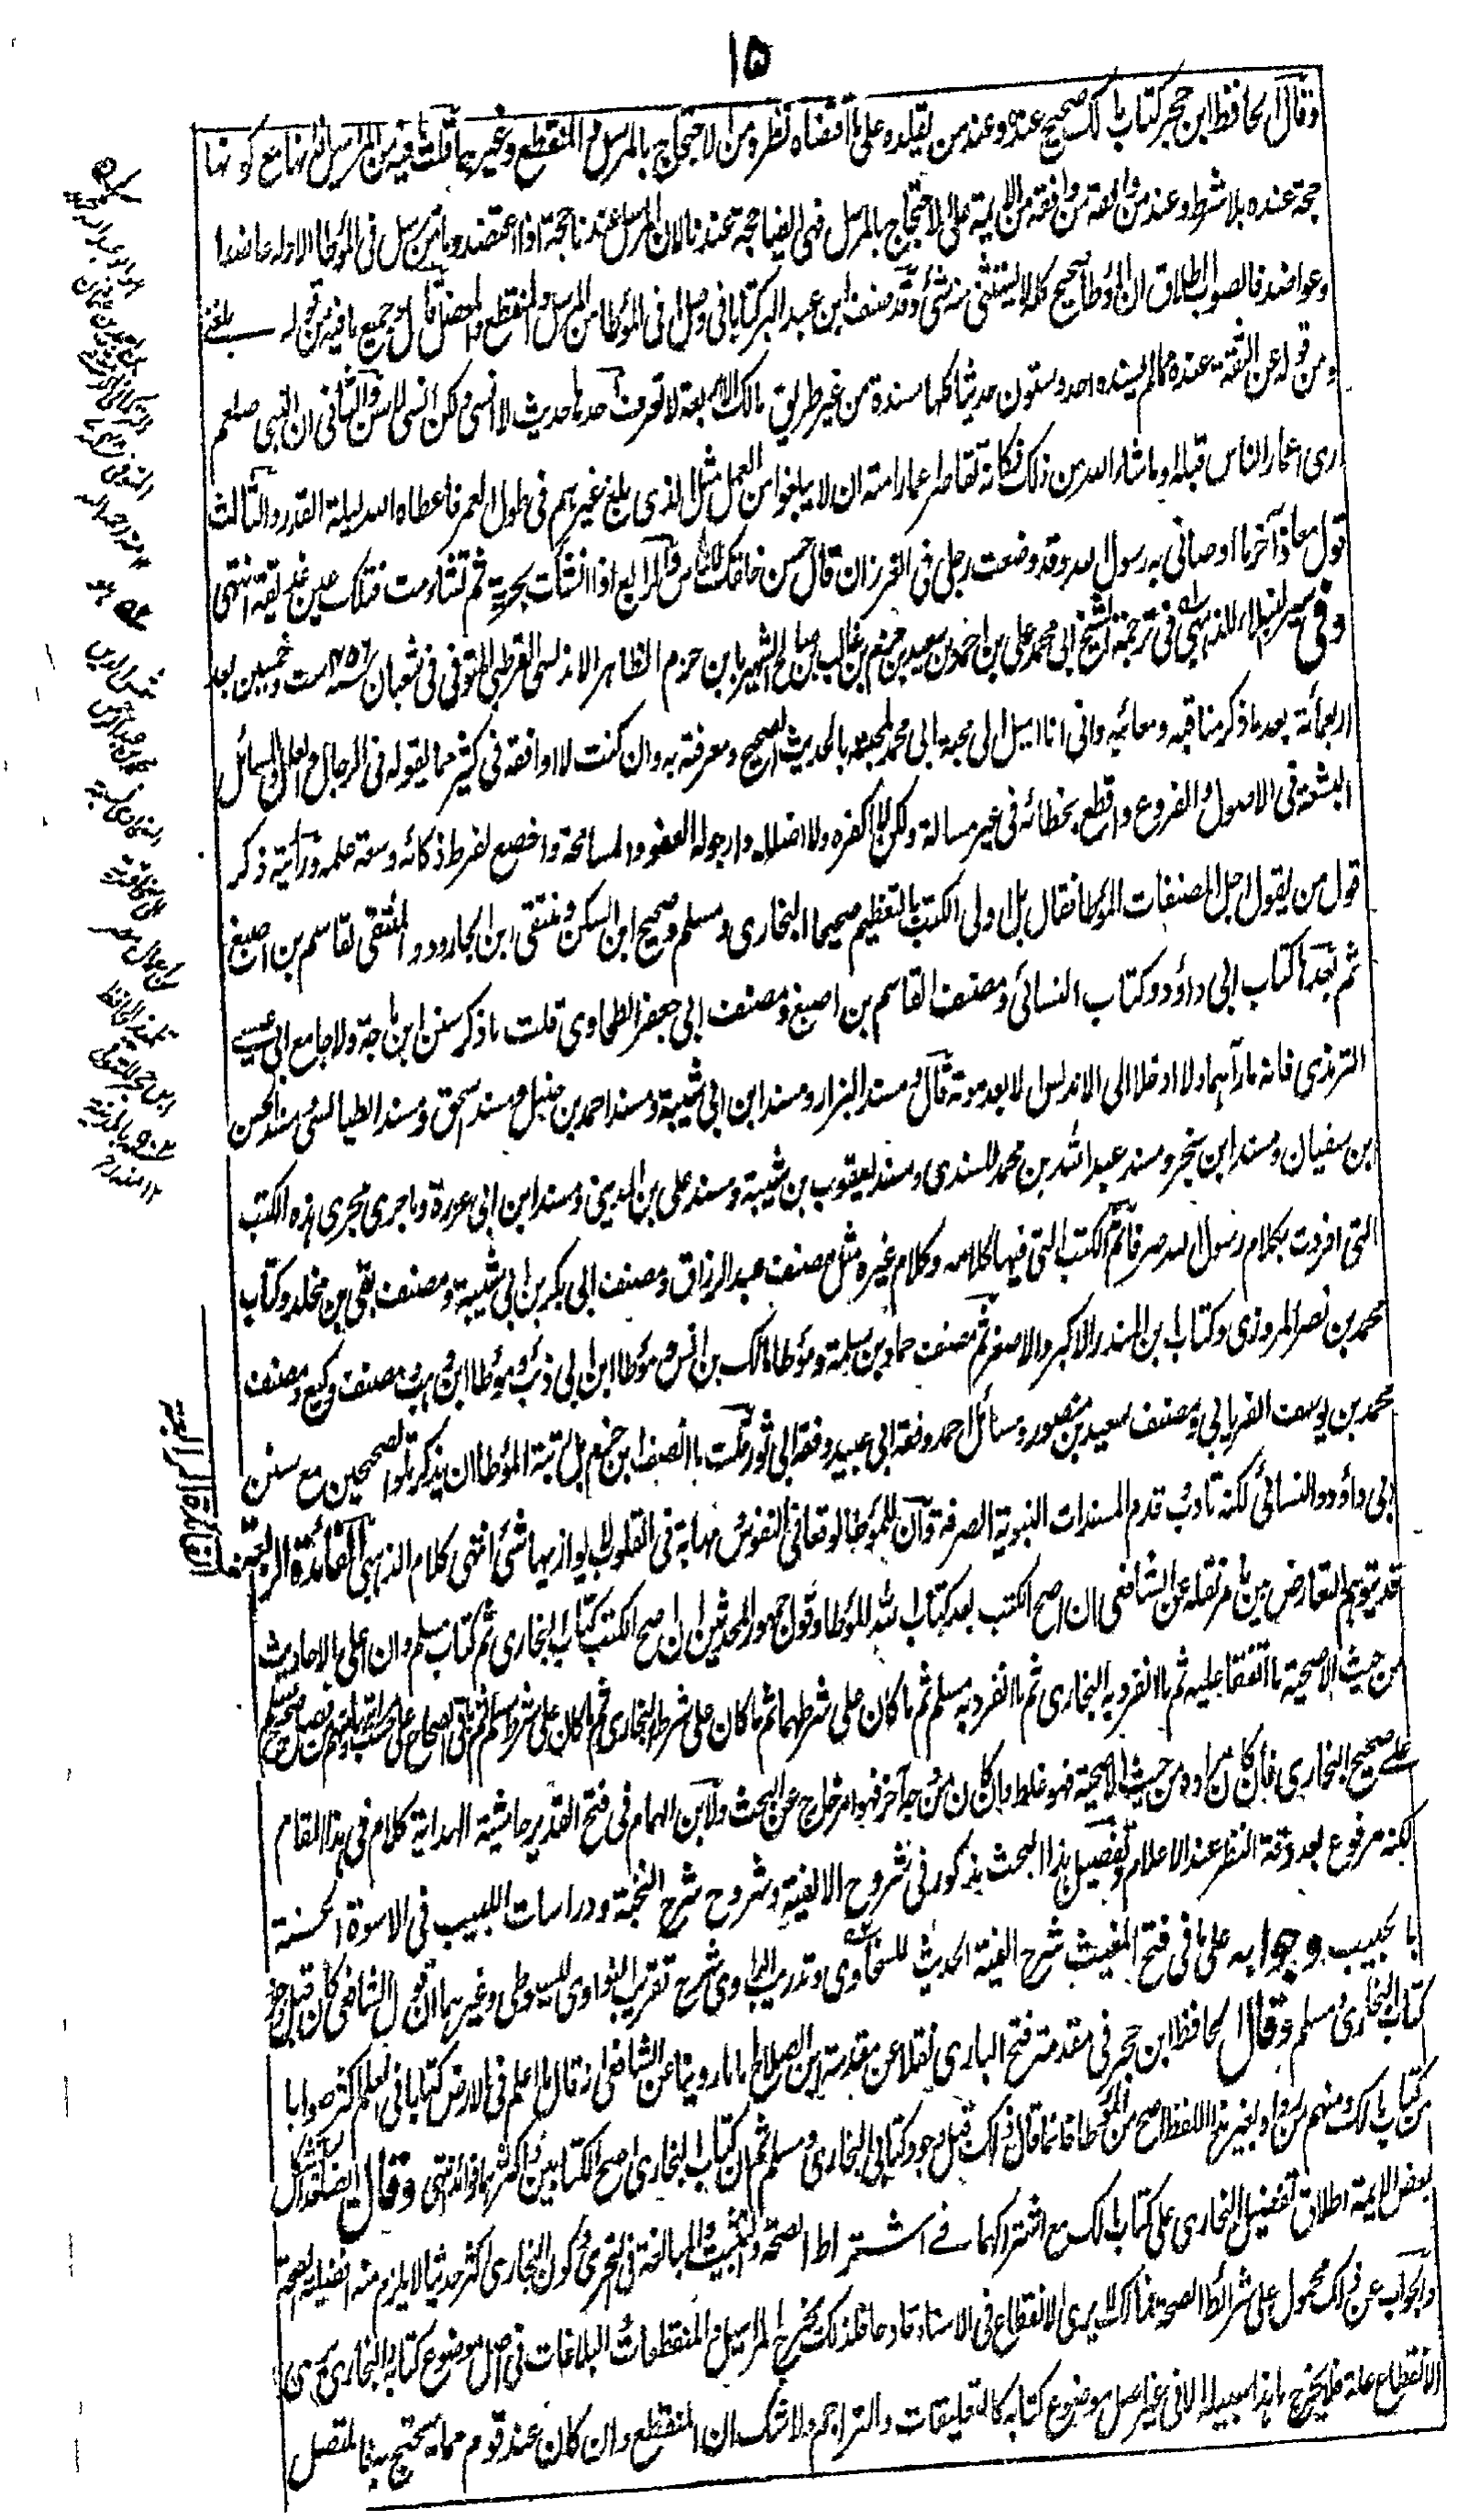 ۱۵
وقال الحافظ ابن حجر كتاب مالك صحيح عنده وعند من يقلده على ما اقتضاه نظره من الاحتجاج بالمرسل والمنقطع وغيرهما قلت ما فيه من المراسيل فانها مع كونها
حجة عنده بلا شرط وعند من وافقه من الايمة على الاحتجاج بالمرسل فهى ايضا حجة عندنا لان المرسل عندنا حجة اذا اعتضد وما من مرسل فى المؤطا الا وله عاضد او
وعواضد فالصواب اطلاق ان المؤطا صحيح كله لا يستثنى منه شئ وقد صنف ابن عبد البر كتابا فى وصل ما فى المؤطا من المرسل والمنقطع والمعضل قال وجميع ما فيه من قوله بلغنى
ومن قوله عن الثقة عنده مما لم يسنده احد وستون حديثا كلها مسندة من غير طريق مالك الا اربعة لا تعرف احدها حديث لا انسى ولكن انسى لاسن والثانى ان النبى صلعم
ارى اعمار الناس قبله او ما شاء الله من ذلك فكانه تقاصر اعمار امته ان لا يبلغوا من العمل مثل الذى بلغ غيرهم فى طول العمر فاعطاه الله ليلة القدر والثالث
قول معاذ آخر ما اوصانى به رسول الله وقد وضعت رجلى فى الغرز ان قال حسن خلقك للناس والرابع اذا انشأت بحرية ثم تشاءمت فتلك عين غديقة انتهى
وفى سير النبلاء للذهبى فى ترجمة الشيخ ابى محمد على بن احمد بن سعيد بن حزم بن غالب بن صالح الشهير بابن حزم الظاهر الاندلسى القرطبى المتوفى فى شعبان سنة ۴۵۶ ست وخمسين بعد
اربعمائة بعد ما ذكر مناقبه ومعائبه وانى انا اميل الى محبة ابى محمد لمحبته بالحديث الصحيح ومعرفته به وان كنت لا اوافقه فى كثير مما يقوله فى الرجال والعلل والمسائل
البشعة فى الاصول والفروع واقطع بخطائه فى غير مسالة ولكن لا اكفره ولا اضلله وارجو له العفو والمسامحة واخضع لفرط ذكائه وسعة علمه ورأيته ذكر
قول من يقول اجل المصنفات المؤطا فقال بل اولى الكتب بالتعظيم صحيحا البخارى ومسلم وصحيح ابن السكن ومنتقى ابن الجارود والمنتقى لقاسم بن اصبغ
ثم بعدها كتاب ابى داؤد وكتاب النسائى ومصنف القاسم بن اصبغ ومصنف ابى جعفر الطحاوى قلت ما ذكر سنن ابن ماجة ولا جامع ابى عيسے
الترمذى فانه ما رآهما ولا ادخلا الى الاندلس الا بعد موته قال ومسند البزار ومسند ابن ابى شيبة ومسند احمد بن حنبل ومسند اسحق ومسند الطيالسى ومسند الحسن
ابن سفيان ومسند ابن سنجر ومسند عبد الله بن محمد المسندى ومسند يعقوب بن شيبة ومسند على بن المدينى ومسند ابن ابى عزرة وما جرى مجرى هذه الكتب
التى افردت بكلام رسول الله صرفا ثم الكتب التى فيها كلامه وكلام غيره مثل مصنف عبد الرزاق ومصنف ابى بكر بن ابى شيبة ومصنف بقى بن مخلد وكتاب
محمد بن نصر المروزى وكتاب ابن المنذر الاكبر والاصغر ثم مصنف حماد بن سلمة ومؤطا مالك بن انس ومؤطا ابن ابى ذئب ومؤطا ابن وهب ومصنف وكيع ومصنف
محمد بن يوسف الفريابى ومصنف سعيد بن منصور ومسائل احمد وفقه ابى عبيد وفقه ابى ثور قلت ما انصف ابن حزم بل رتبة المؤطا ان يذكر تلو الصحيحين مع سنن
ابى داؤد والنسائى لكنه تادب وقدم المسندات النبوية الصرفة وان للمؤطا لوقعا فى النفوس ومهابة فى القلوب لا يوازيها شئ انتهى كلام الذهبى الفائدة الرابعة
قد يتوهم التعارض بين ما مر نقله عن الشافعى ان اصح الكتب بعد كتاب الله المؤطا وقول جمهور المحدثين ان اصح الكتب كتاب البخارى ثم كتاب مسلم وان اعلى الاحاديث
من حيث الاصحية ما اتفقا عليه ثم ما انفرد به البخارى ثم ما انفرد به مسلم ثم ما كان على شرطهما ثم ما كان على شرط البخارى ثم ما كان على شرط مسلم ثم باقى الصحاح على حسب مراتبها ومنهم من فضل صحيح مسلم
علے صحيح البخارى فان كان مراده من حيث الاصحية فهو غلط وان كان من وجه آخر فهو امر خارج عن البحث ولابن الهمام فى فتح القدير حاشية الهداية كلام فى هذا المقام
لكنه مرفوع بعد دقة النظر عند الاعلام وتفصيل هذا البحث مذكور فى شروح الالفية وشروح شرح النخبة ودراسات اللبيب فى الاسوة الحسنة
بالحبيب وجوابه على ما فى فتح المغيث شرح الفية الحديث للسخاوى وتدريب الراوى شرح تقريب النواوى للسيوطى وغيرهما ان قول الشافعى كان قبل وجود
كتاب البخارى ومسلم وقال الحافظ ابن حجر فى مقدمة فتح البارى نقلا عن مقدمة ابن الصلاح اما ما روينا عن الشافعى انه قال ما اعلم فى الارض كتابا فى العلم اكثر صوابا
من كتاب مالك ومنهم من رواه بغير هذا اللفظ اصح من المؤطا فانما قال ذلك قبل وجود كتابى البخارى ومسلم ثم ان كتاب البخارى اصح الكتابين واكثرهما فوائد انتهى وقال ايضا قد استشكل
بعض الايمة اطلاق تفضيل البخارى على كتاب مالك مع اشتراكهما فے اشتراط الصحة والتثبت والمبالغة فى التحرى وكون البخارى اكثر حديثا لا يلزم منه افضلية الصحة
والجواب عن ذلك محمول على شرائط الصحة فمالك لا يرى الانقطاع فى الاسناد قادحا فلذلك يخرج المراسيل والمنقطعات والبلاغات فى اصل موضوع كتابه والبخارى يرى
الانقطاع علة فلا يخرج ما هذا سبيله الا فى غير اصل موضوع كتابه كالتعليقات والتراجم ولا شك ان المنقطع وان كان عند قوم مما يحتج به فالمتصل
الفائدة الرابعة